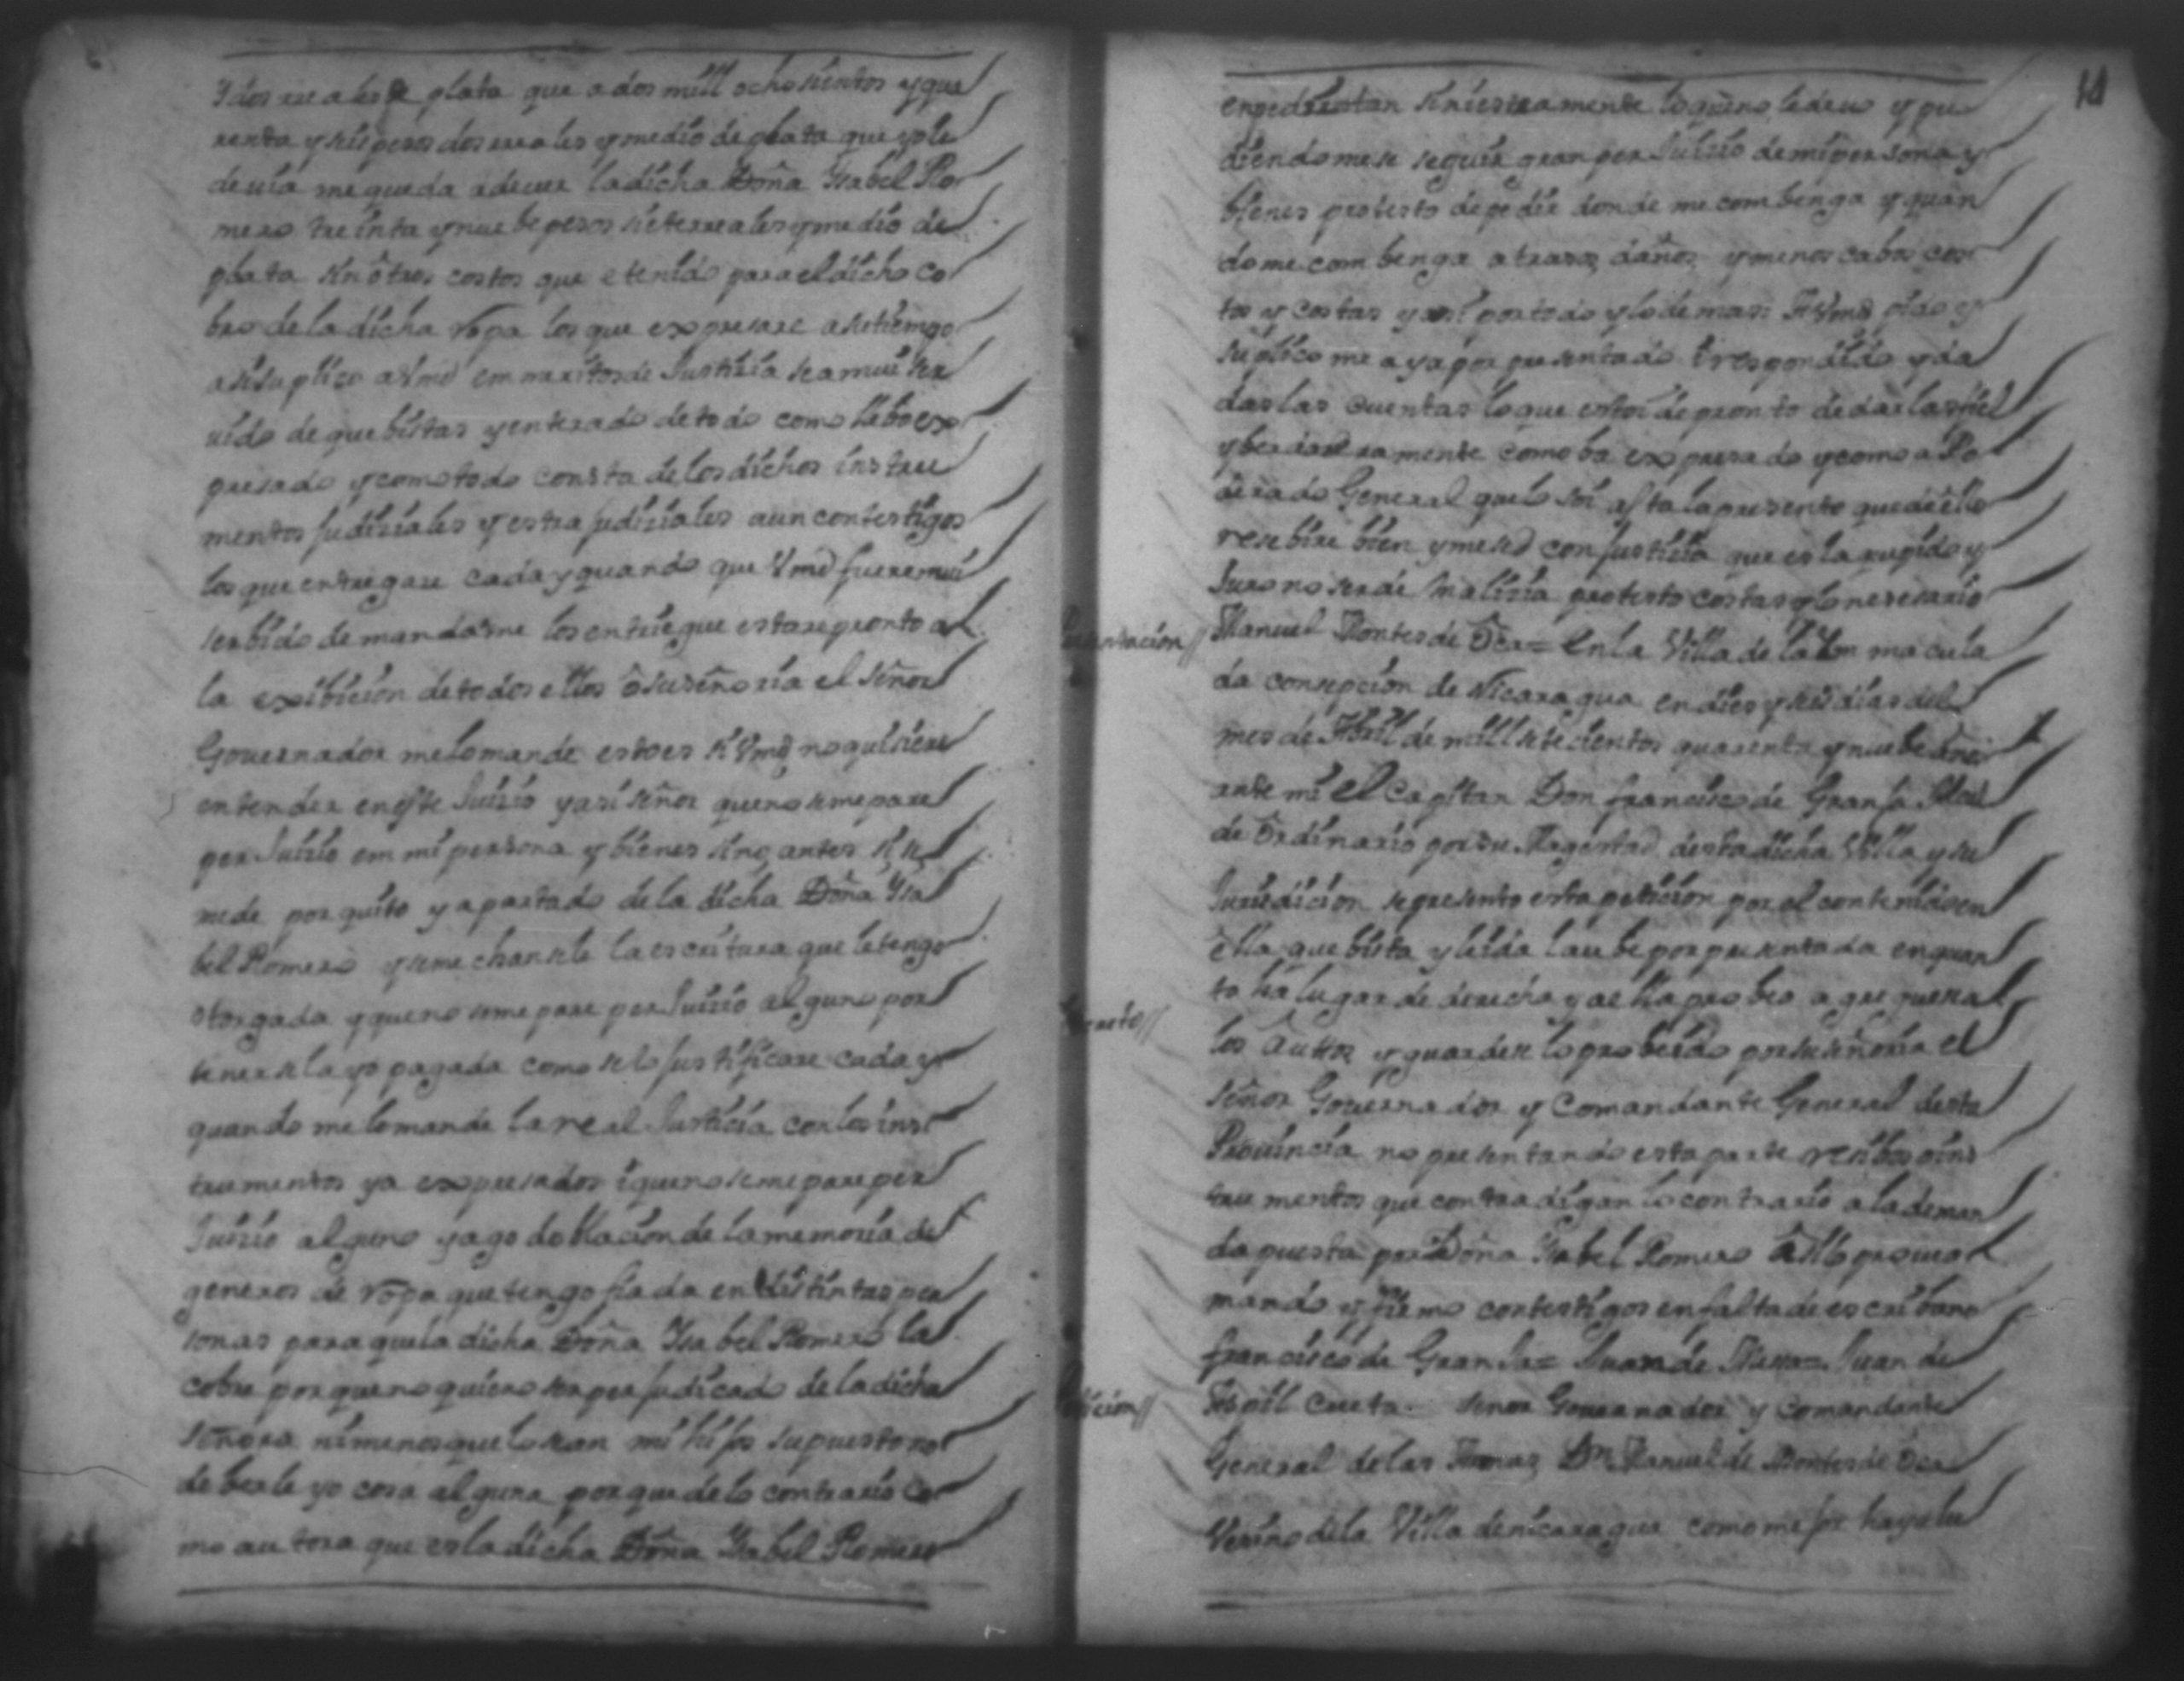 Y dos rreales de plata que a dos mill ochosientos y qua
renta y seis pesos dos rreales y medio de plata que yo le
deuia me queda a deuer la dicha Doña Ysabel Ro
mero treinta y nuebe pesos siete rreales y medio de
plata sin otros costos que e tenido para el dicho co
bro de la dicha ropa los que expresare a su tiempo
asi suplico a Vmd en meritos de Justizia sea mui ser
uido de que bistas y enterado de todo como llebo ex
presado y como todo consta de los dichos instru
mentos judiziales y estrajudiziales aun con testigos
los que entregare cada y quando que Vmd fuere mui
serbido de mandarme los entriegue estare pronto a
la exsibicion de todos ellos o su señoria el señor
Gouernador me lo mande esto es si Vmd no quisiere
entender en este Juizio y asi señor que no se me pare
perJuizio em mi persona y bienes sino antes si se
me de por quito y apartado de la dicha Doña Ysa
bel Romero y se me chansele la escritura que le tengo
otorgada y que no se me pare perJuizio alguno por
tenersela yo pagada como se lo justificare cada y
quando me lo mande la real Justicia con los ins
trumentos ya expresados i que no se me pare per
Juizio alguno y ago de
 la memoria de
generos de ropa que tengo fiada en distintas per
sonas para que la dicha Doña Ysabel Romero la
cobre por que no quiero ser perjudicado de la dicha
señora ni menos que lo sean mi hijos supuesto no
deberle yo cosa alguna porque de lo contrario co
mo autora que es la dicha Doña Ysabel Romero
10
siniestramente lo que no le deuo y pu
diendoseme seguir gran perJuizio de mi persona y
bienes protesto de pedir donde me combenga y quan
do me combenga atrasos daños y menoscabos cos
tos y costas y asi por todo y lo demas A Vmd pido y
suplico me aya por presentado i respondido y da
das las cuentas lo que estoi de pronto de darlas fiel
y berdaderamente como ba expresado y como aPo
derado General que lo soi asta la presente que de ello
resebire bien y mersed con justicia que es la que pido y
Juro no ser de malizia protesto costas y lo nesesario
Manuel Montes de Oca = En la Villa de la Ynmacula
Presentacion //
da consepcion de Nicaragua en dies y seis dias del
mes de Abril de mill setecientos quarenta y nuebe años
ante mi el Capitan Don francisco de Granja Alcal
de Ordinario por su Magestad desta dicha Villa y su
Jurisdicion se presento esta peticion por el contenido en
ella que bista y leida la ube por presentada en quan
to ha lugar de derecho y a ella probeo agreguesea
los Autos y guardese lo probeido por su señoria el
señor Gouernador y Comandante General desta
Prouincia no presentando esta parte resibos o ins
trumentos que contradigan lo contrario a la deman
da puesta por Doña Ysabel Romero Asi lo probeo
mando y firmo con testigos en falta de escribano
francisco de Granja = Juan de
 = Juan de
Aspill Cueta = señor Gouernador y Comandante
Peticion //
General de las Armas Dn Manuel de Montes de Oca
Vesino de la Villa de nicaragua como mejor haya lu